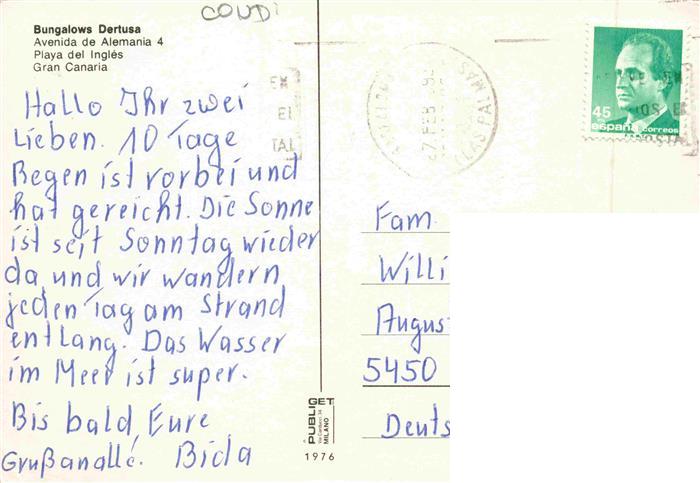 Bungalows Dertusa
Avenida de Alemania 4
Playa del Inglés
Gran Canaria
Hallo Ihr zwei
Lieben. 10 Tage
Regen ist vorbei und
hat gereicht. Die Sonne
ist seit Sonntag wieder
da, und wir wandern
jeden Tag am Strand
entlang. Das Wasser
im Meer ist super.
Bis bald, Eure
Gruß an allé. Bida
Fam
Willi
Augus
5450
Deuts
PUBLIGET
MILANO
1976
45
españa correos
FEB
LAS PAL